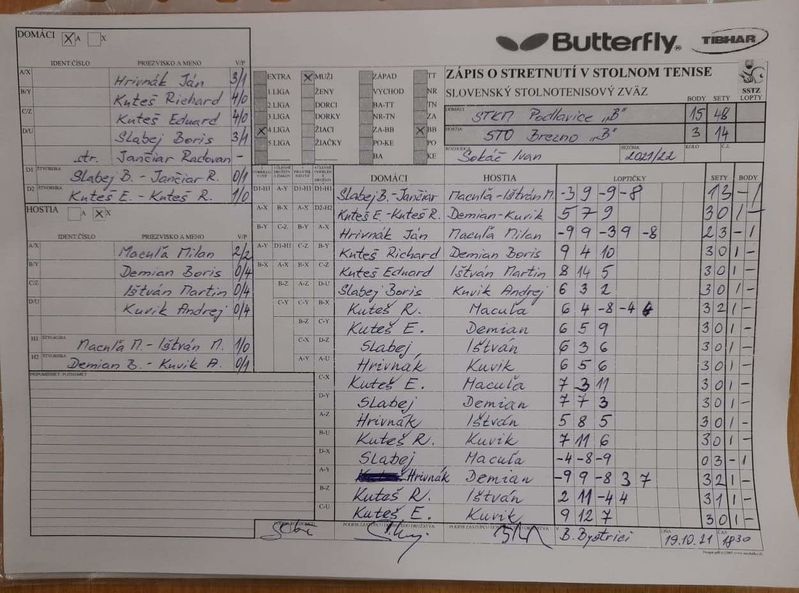 DOMÁCI X A X
Butterfly TIBHAR
IDENT.ČÍSLO PRIEZVISKO A MENO V/P
A/X Hrivnák Ján 3/1
B/Y Kuteš Richard 4/0
C/Z Kuteš Eduard 4/0
D/U Slabej Boris 3/1
str. Jančiar Radovan -
D1 ŠTVORHRA Slabej B. - Jančiar R. 0/1
D2 ŠTVORHRA Kuteš E. - Kuteš R. 1/0
HOSTIA A X X
IDENT.ČÍSLO PRIEZVISKO A MENO V/P
A/X Macuľa Milan 2/2
B/Y Demian Boris 0/4
C/Z Ištván Martin 0/4
D/U Kuvik Andrej 0/4
H1 ŠTVORHRA Macuľa M. - Ištván M. 1/0
H2 ŠTVORHRA Demian B. - Kuvik A. 0/1
EXTRA X MUŽI ZÁPAD TT
1 LIGA ŽENY VÝCHOD NR
2 LIGA DORCI BA-TT TN
3 LIGA DORKY NR-TN ZA
X 4 LIGA ŽIACI ZA-BB X BB
5 LIGA ŽIAČKY PO-KE PO
BA KE
ZÁPIS O STRETNUTÍ V STOLNOM TENISE
SLOVENSKÝ STOLNOTENISOVÝ ZVÄZ
SSTZ
BODY SETY LOPTY
DOMÁCI STKM Podlavice "B" 15 48
HOSTIA STO Brezno "B" 3 14
ROZHODCA Sokáč Ivan SEZÓNA 2021/22 KOLO Č.Z.
DOMÁCI HOSTIA LOPTIČKY SETY BODY
D1-H1 Slabej B. - Jančiar Macuľa - Ištván M. -3 9 -9 -8 1 3 - 1
D2-H2 Kuteš E. - Kuteš R. Demian - Kuvik 5 7 9 3 0 1 -
A-X Hrivnák Ján Macuľa Milan -9 9 -3 9 -8 2 3 - 1
B-Y Kuteš Richard Demian Boris 9 4 10 3 0 1 -
C-Z Kuteš Eduard Ištván Martin 8 14 5 3 0 1 -
D-U Slabej Boris Kuvik Andrej 6 3 2 3 0 1 -
Kuteš R. Macuľa 6 4 -8 -4 6 3 2 1 -
Kuteš E. Demian 6 5 9 3 0 1 -
Slabej Ištván 6 3 6 3 0 1 -
Hrivnák Kuvik 6 5 6 3 0 1 -
C-X Kuteš E. Macuľa 7 3 11 3 0 1 -
D-Y Slabej Demian 7 7 3 3 0 1 -
A-Z Hrivnák Ištván 5 8 5 3 0 1 -
B-U Kuteš R. Kuvik 7 11 6 3 0 1 -
D-X Slabej Macuľa -4 -8 -9 0 3 - 1
A-Y Hrivnák Demian -9 9 -8 3 7 3 2 1 -
B-Z Kuteš R. Ištván 2 11 -4 4 3 1 1 -
C-U Kuteš E. Kuvik 9 12 7 3 0 1 -
B. Bystrici 19.10.21 1830